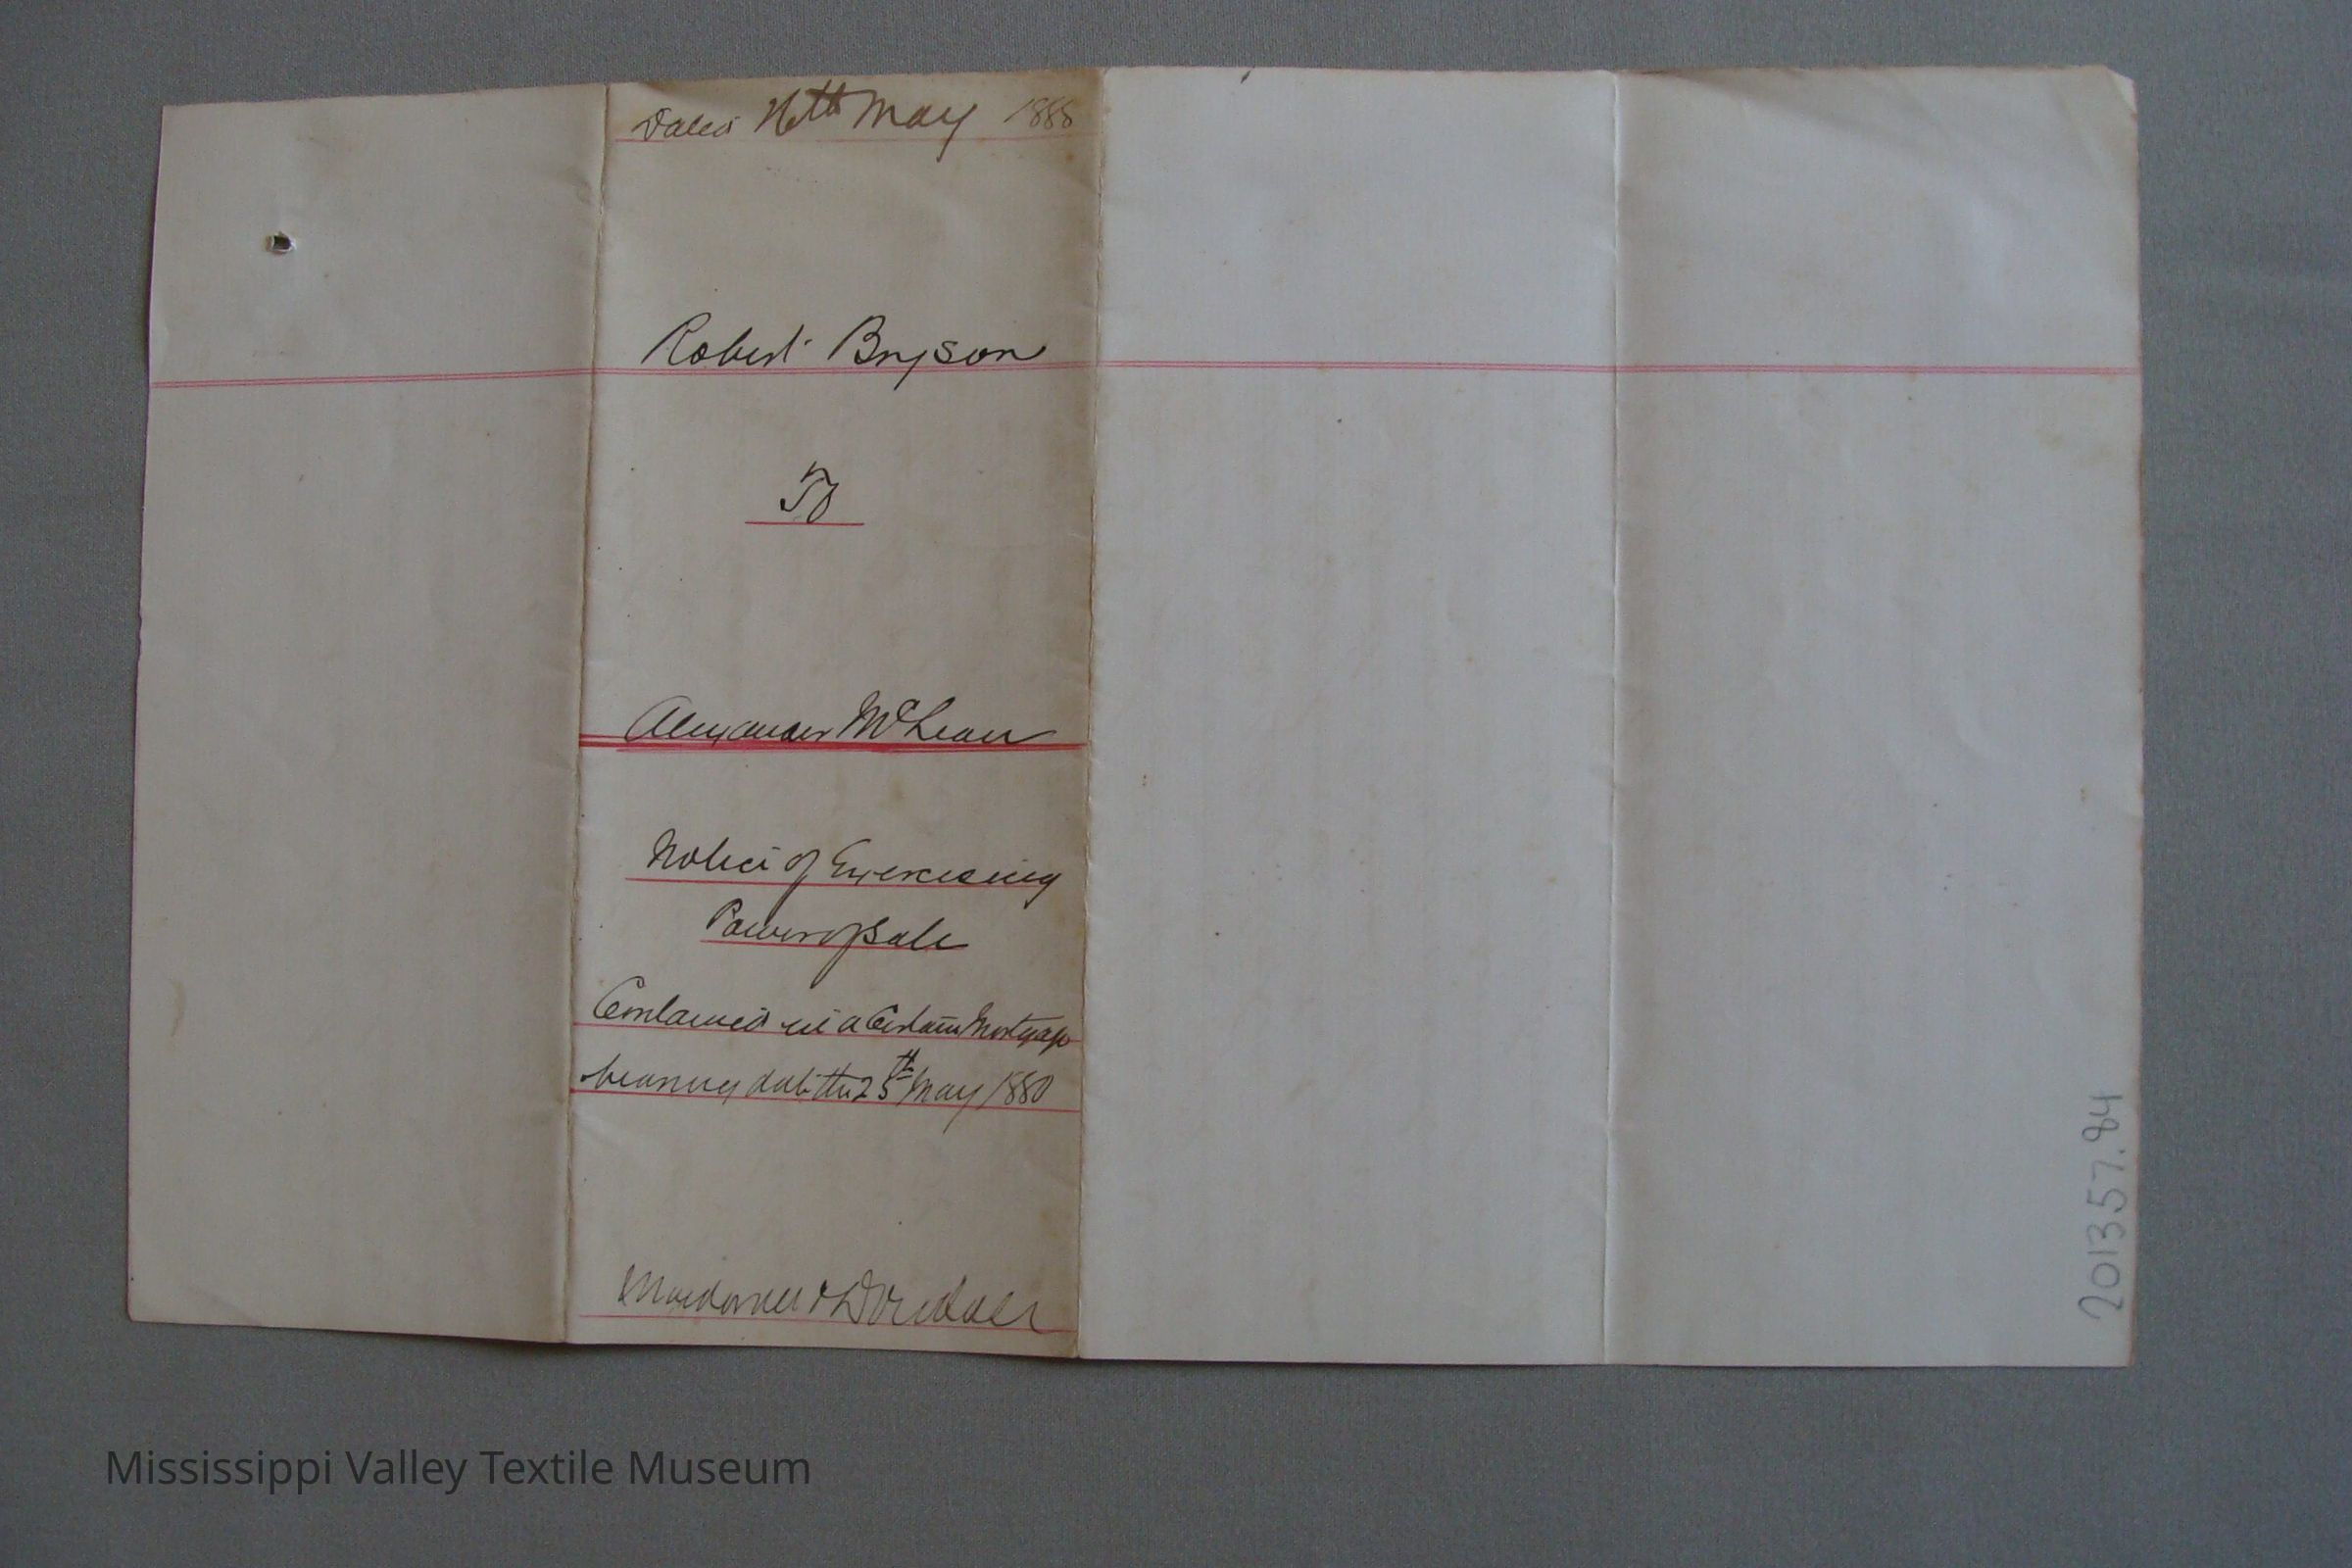 Dated 16th May 1888
Robert Bryson
To
Alexander McLean
Notice of Exercising
Power of Sale
Contained in a Certain Mortgage
bearing date the 25th May 1880
Macdonell &
2013.57.84
Mississippi Valley Textile Museum